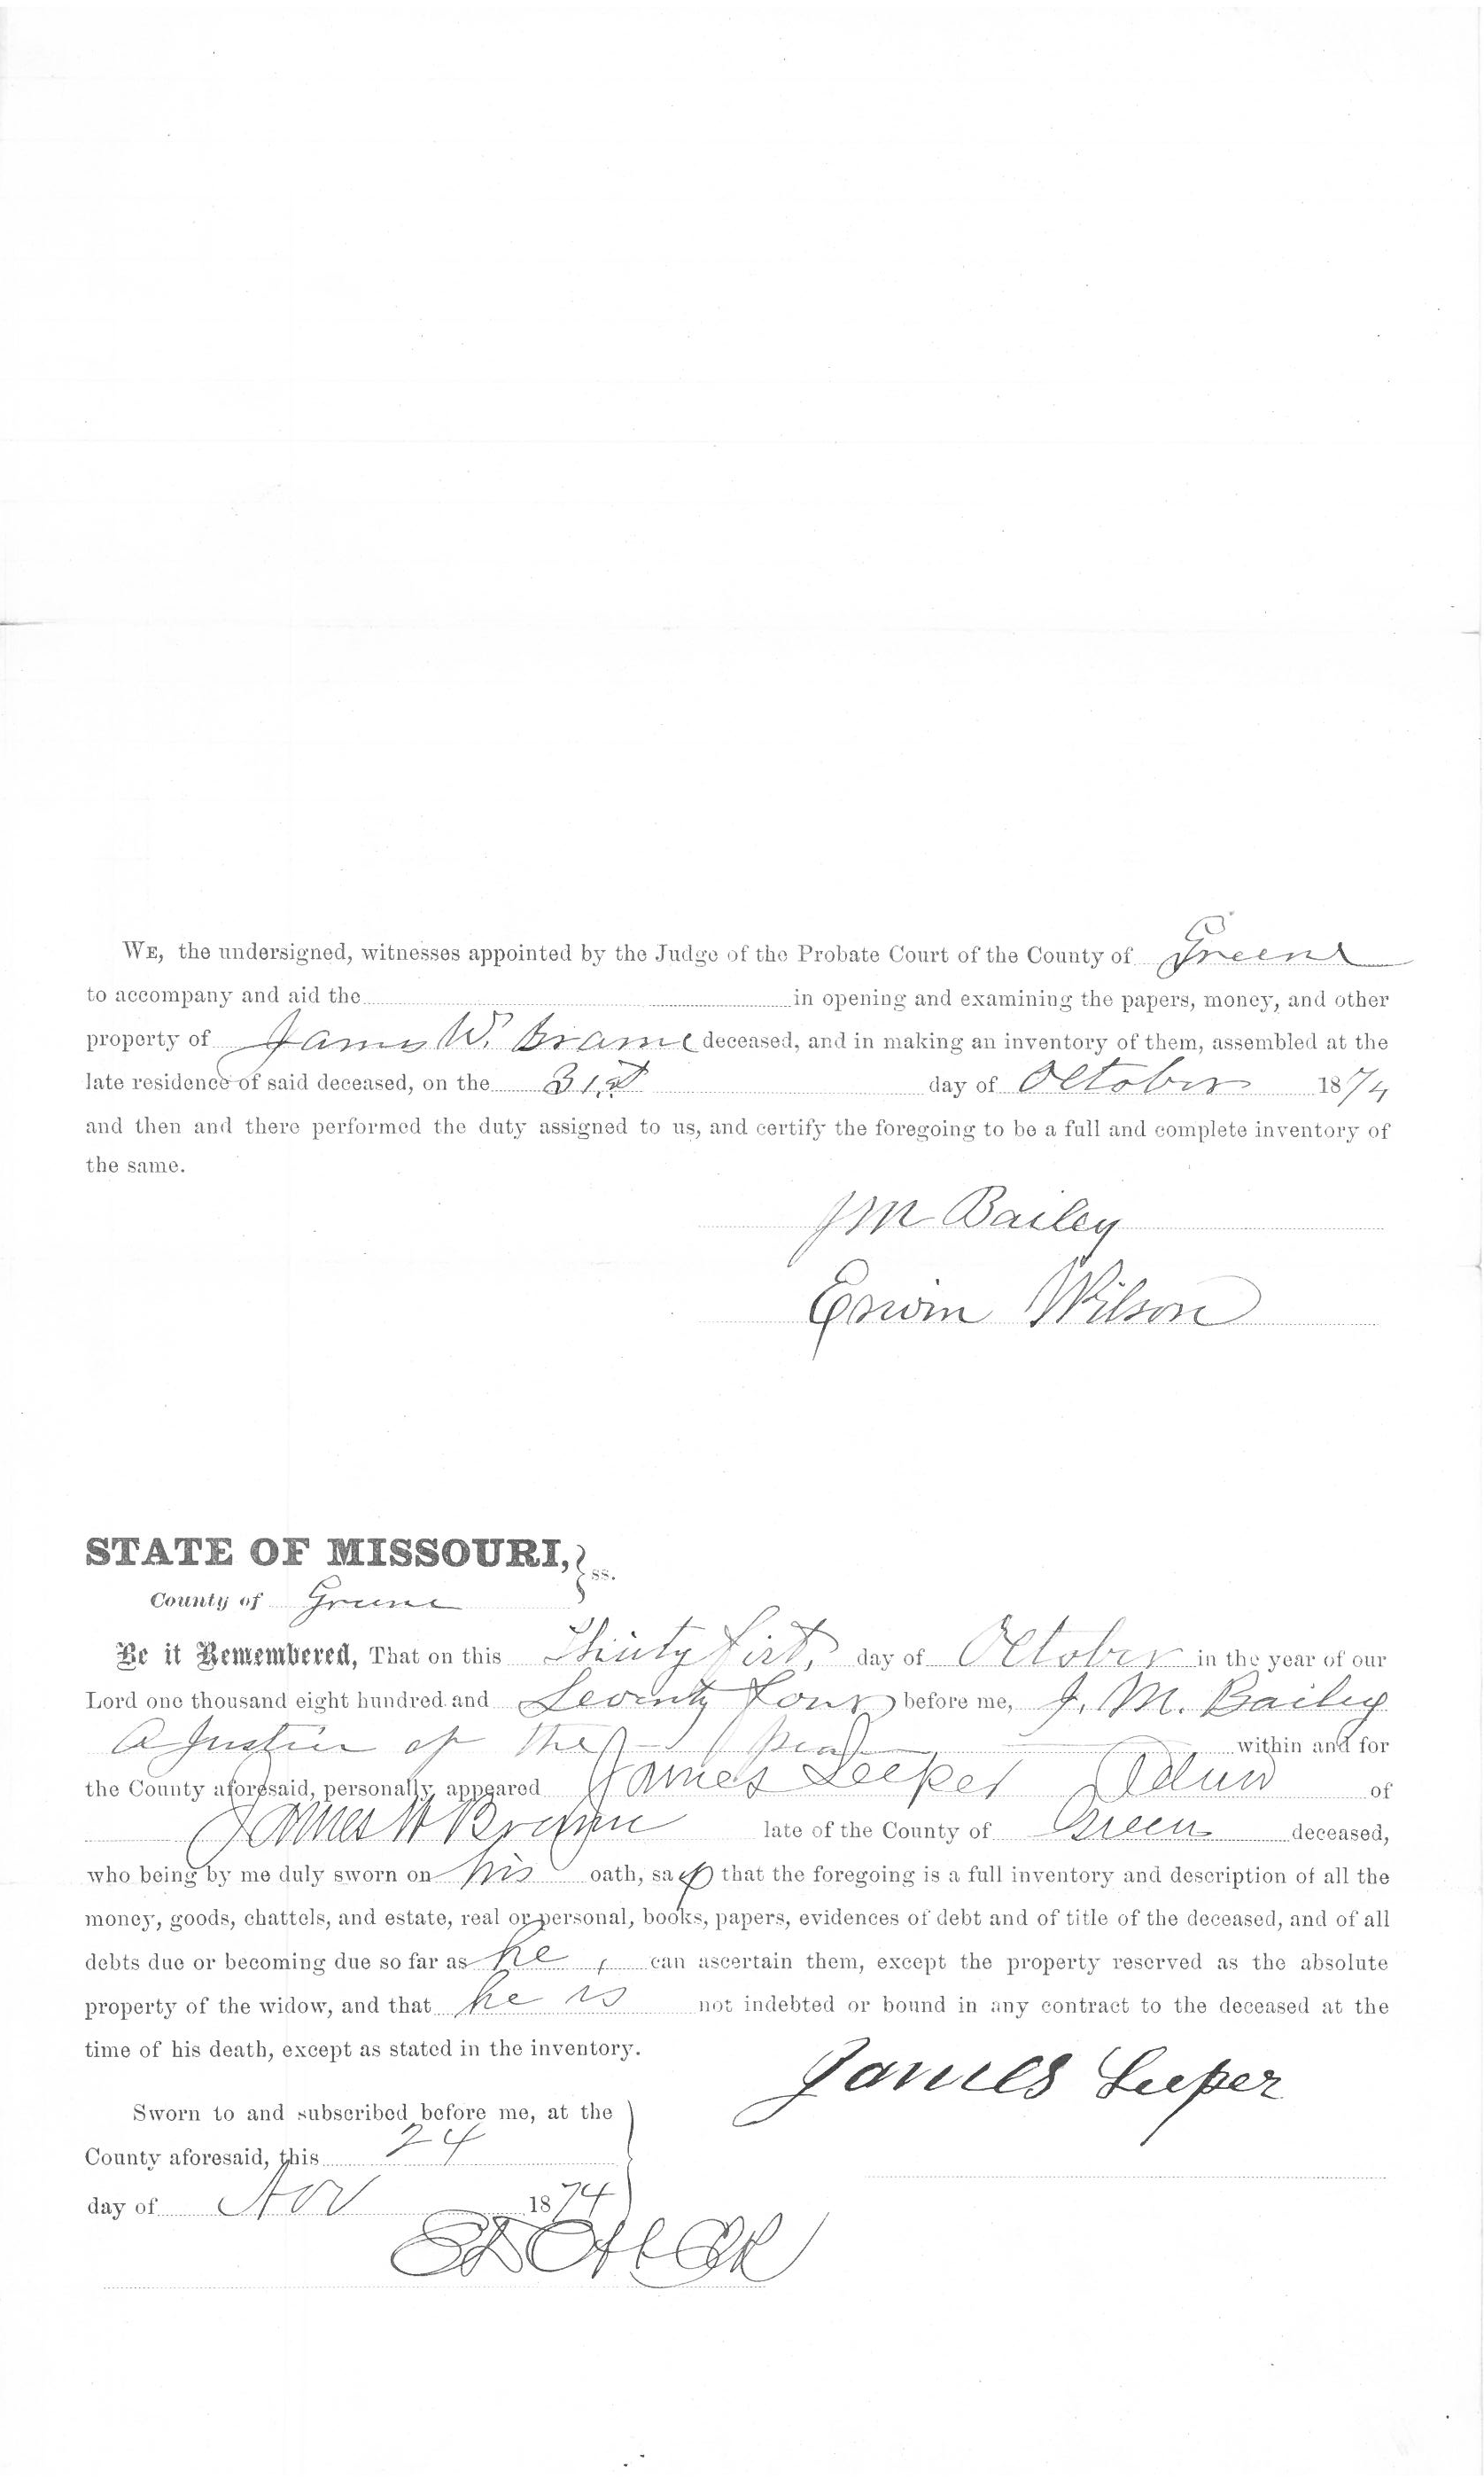 WE, the undersigned, witnesses appointed by the Judge of the Probate Court of the County of Greene
to accompany and aid the in opening and examining the papers, money, and other
property of James W. Brame deceased, and in making an inventory of them, assembled at the
late residence of said deceased, on the 31st day of October 1874
and then and there performed the duty assigned to us, and certify the foregoing to be a full and complete inventory of
the same.
JM Bailey
Erwin Wilson
STATE OF MISSOURI, } ss.
County of Greene
Be it Remembered, That on this Thirty first, day of October in the year of our
Lord one thousand eight hundred and Seventy Four before me, J. M. Bailey
A Justice of the peace within and for
the County aforesaid, personally, appeared James Leeper Admr of
James W Brame late of the County of Green deceased,
who being by me duly sworn on his oath, say that the foregoing is a full inventory and description of all the
money, goods, chattels, and estate, real or personal, books, papers, evidences of debt and of title of the deceased, and of all
debts due or becoming due so far as he, can ascertain them, except the property reserved as the absolute
property of the widow, and that he is not indebted or bound in any contract to the deceased at the
time of his death, except as stated in the inventory.
James Leeper
Sworn to and subscribed before me, at the
County aforesaid, this 24
day of Nov 1874